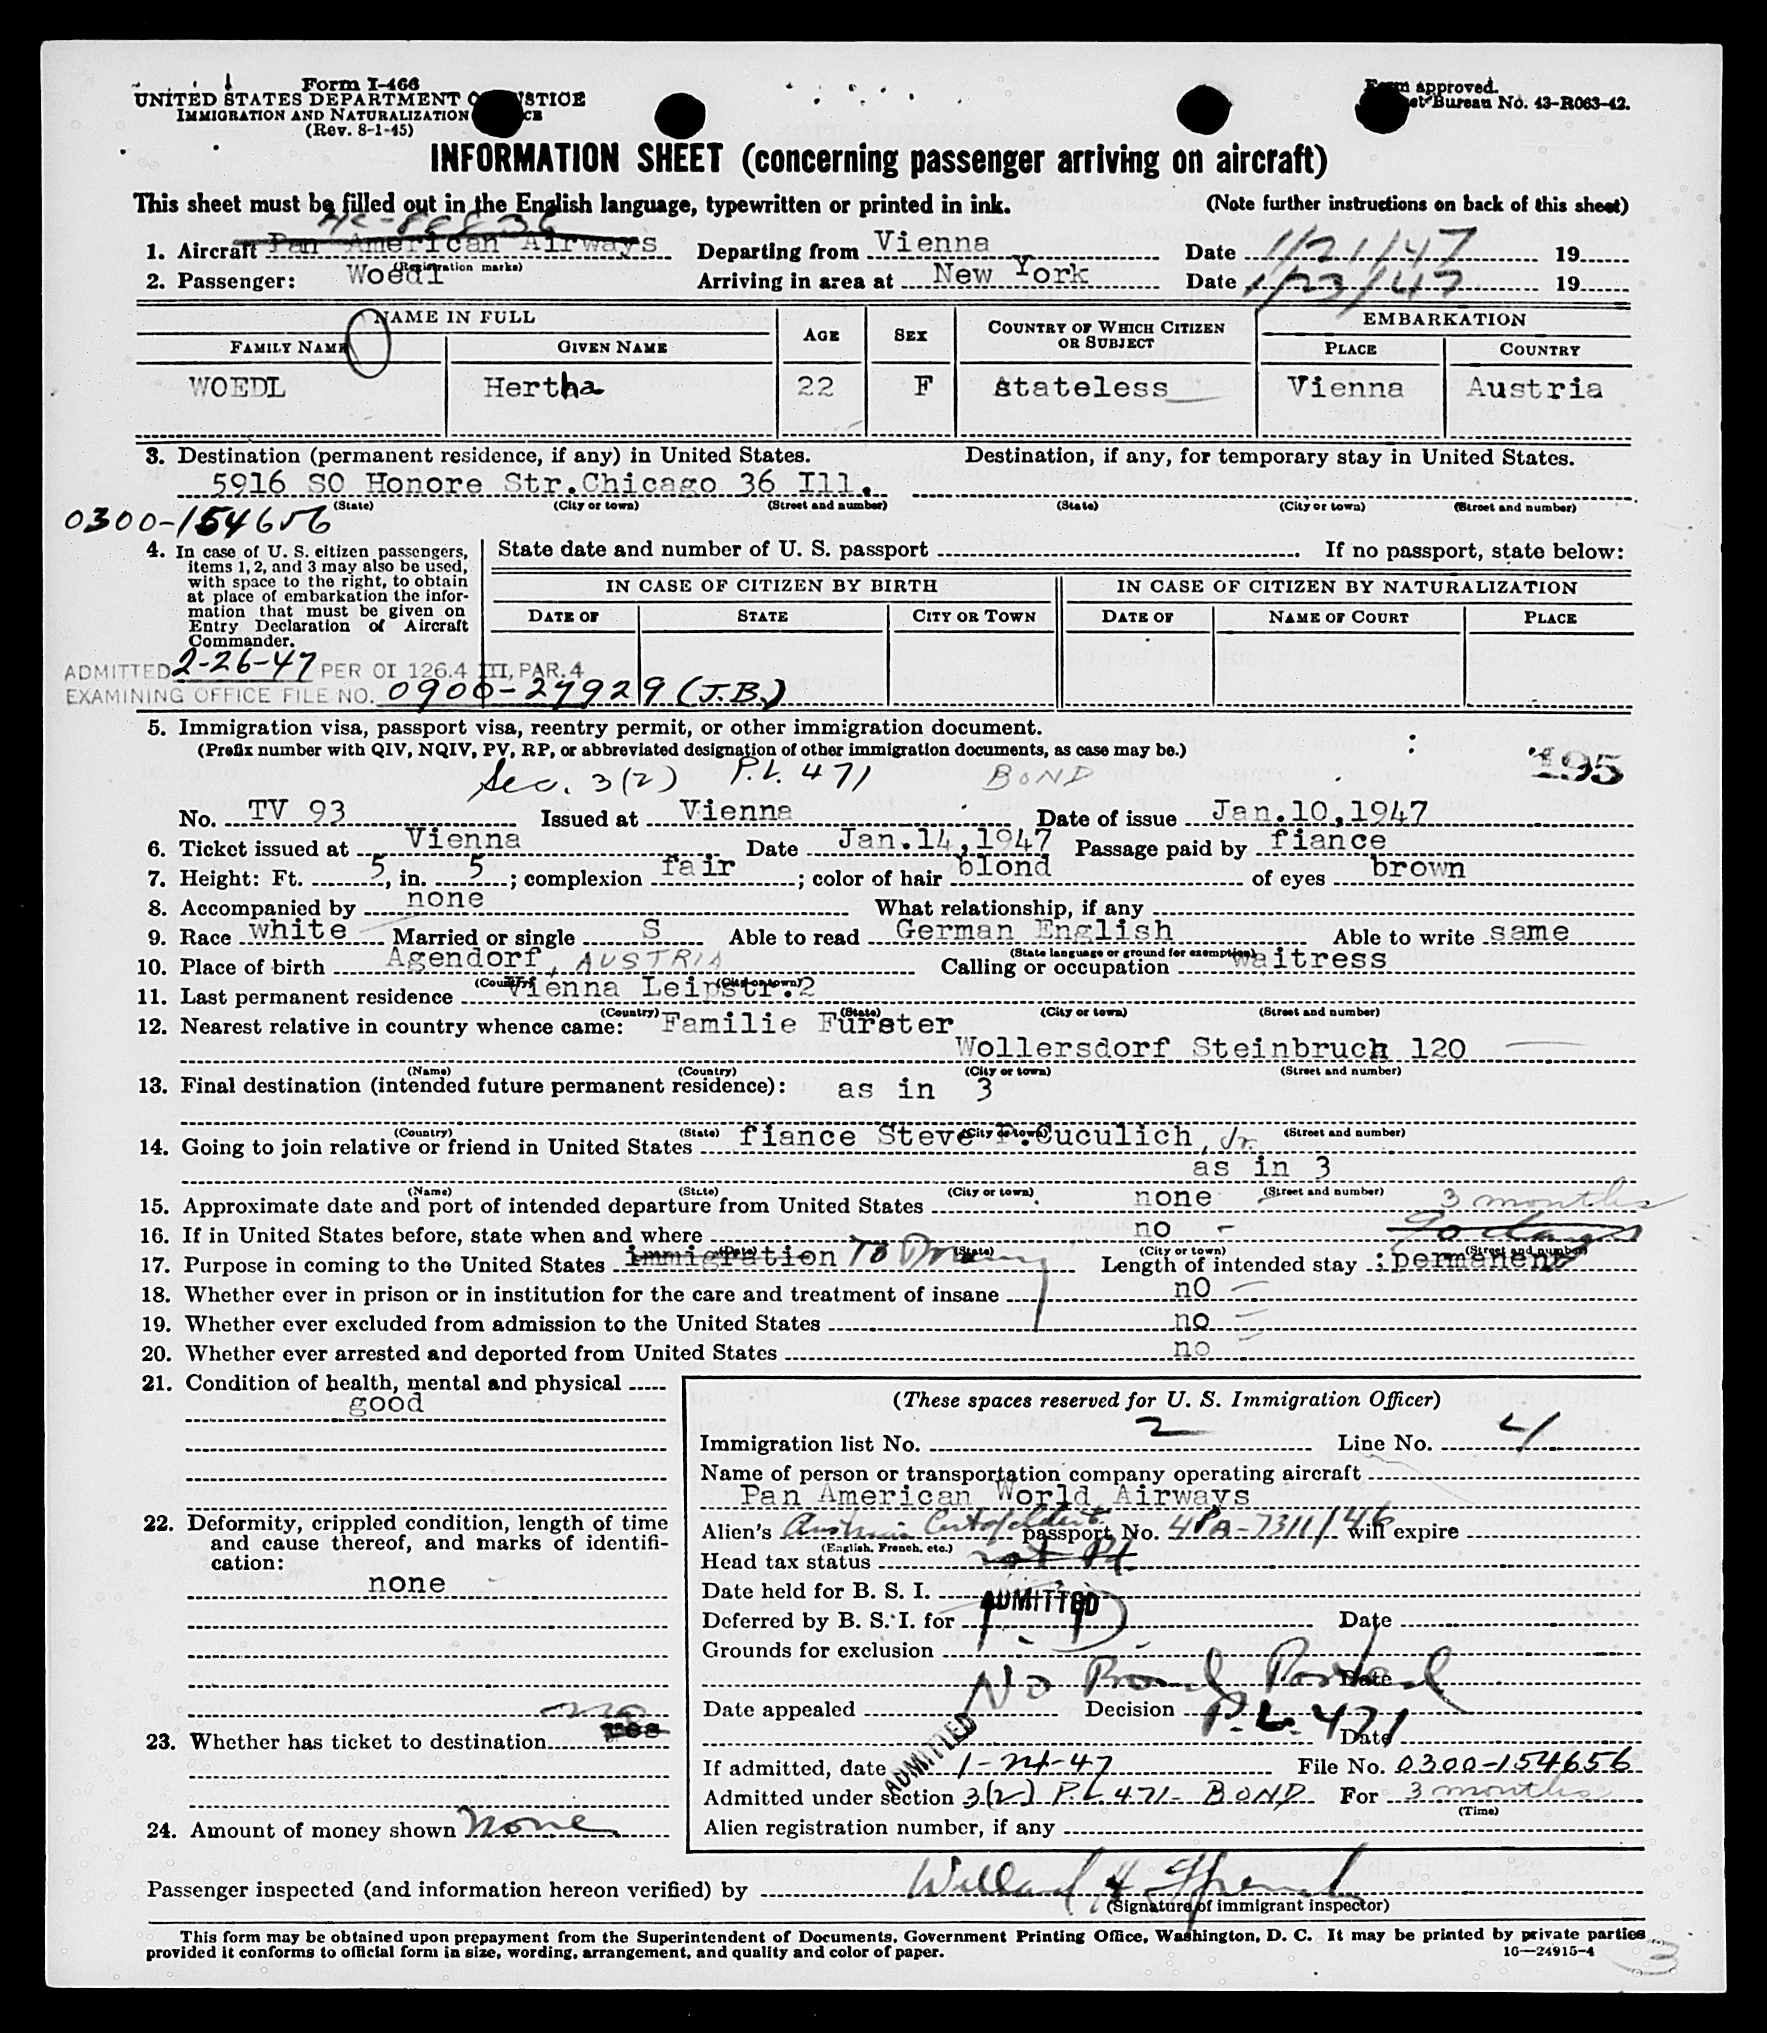 Form I-466
UNITED STATES DEPARTMENT OF JUSTICE
IMMIGRATION AND NATURALIZATION
(Rev. 8-1-45)
Form approved.
Bureau No. 43-R063-42.
INFORMATION SHEET (concerning passenger arriving on aircraft)
This sheet must be filled out in the English language, typewritten or printed in ink. (Note further instructions on back of this sheet)
1. Aircraft Pan American Airways Departing from Vienna Date 1/21/47 19
(Registration marks)
2. Passenger: Woedl Arriving in area at New York Date 1/23/47 19
NAME IN FULL AGE SEX COUNTRY OF WHICH CITIZEN OR SUBJECT EMBARKATION
FAMILY NAME GIVEN NAME PLACE COUNTRY
WOEDL Hertha 22 F stateless Vienna Austria
3. Destination (permanent residence, if any) in United States. Destination, if any, for temporary stay in United States.
5916 SO Honore Str.Chicago 36 Ill.
(State) (City or town) (Street and number) (State) (City or town) (Street and number)
0300-154656
4. In case of U. S. citizen passengers, items 1, 2, and 3 may also be used, with space to the right, to obtain at place of embarkation the information that must be given on Entry Declaration of Aircraft Commander.
State date and number of U. S. passport If no passport, state below:
IN CASE OF CITIZEN BY BIRTH IN CASE OF CITIZEN BY NATURALIZATION
DATE OF STATE CITY OR TOWN DATE OF NAME OF COURT PLACE
ADMITTED 2-26-47 PER OI 126.4 III, PAR. 4
EXAMINING OFFICE FILE NO. 0900-27929 (J.B.)
5. Immigration visa, passport visa, reentry permit, or other immigration document.
(Prefix number with QIV, NQIV, PV, RP, or abbreviated designation of other immigration documents, as case may be.)
195
Sec. 3(2) P.L. 471 BOND
No. TV 93 Issued at Vienna Date of issue Jan.10,1947
6. Ticket issued at Vienna Date Jan.14,1947 Passage paid by fiance
7. Height: Ft. 5, in. 5; complexion fair; color of hair blond of eyes brown
8. Accompanied by none What relationship, if any
9. Race white Married or single S Able to read German English Able to write same
(State language or ground for exemption)
10. Place of birth Agendorf, AUSTRIA Calling or occupation waitress
(Country) (City or town)
11. Last permanent residence Vienna Leipstr.2
(Country) (State) (City or town) (Street and number)
12. Nearest relative in country whence came: Familie Furster
Wollersdorf Steinbruch 120
(Name) (Country) (City or town) (Street and number)
13. Final destination (intended future permanent residence): as in 3
(Country) (State) (City or town) (Street and number)
14. Going to join relative or friend in United States fiance Steve P.Cuculich, Jr.
as in 3
(Name) (State) (City or town) (Street and number)
15. Approximate date and port of intended departure from United States none 3 months
16. If in United States before, state when and where no -
(Date) (State) (City or town) (Street and number)
17. Purpose in coming to the United States immigration To Marry Length of intended stay : permanent
18. Whether ever in prison or in institution for the care and treatment of insane no
19. Whether ever excluded from admission to the United States no
20. Whether ever arrested and deported from United States no
21. Condition of health, mental and physical
good
22. Deformity, crippled condition, length of time and cause thereof, and marks of identification:
none
23. Whether has ticket to destination yes no
24. Amount of money shown None
(These spaces reserved for U. S. Immigration Officer)
Immigration list No. 2 Line No. 4
Name of person or transportation company operating aircraft
Pan American World Airways
Alien's Austrian passport No. 4PA-7311/46 will expire
(English, French, etc.)
Head tax status
Date held for B. S. I.
ADMITTED
Deferred by B. S. I. for Date
Grounds for exclusion
No Bond Posted Date
Date appealed Decision P.L. 471
Date
ADMITTED
If admitted, date 1-24-47 File No. 0300-154656
Admitted under section 3(2) P.L 471- BOND For 3 months
(Time)
Alien registration number, if any
Passenger inspected (and information hereon verified) by Willard H
(Signature of immigrant inspector)
This form may be obtained upon prepayment from the Superintendent of Documents, Government Printing Office, Washington, D. C. It may be printed by private parties
provided it conforms to official form in size, wording, arrangement, and quality and color of paper. 16—24915-4
3